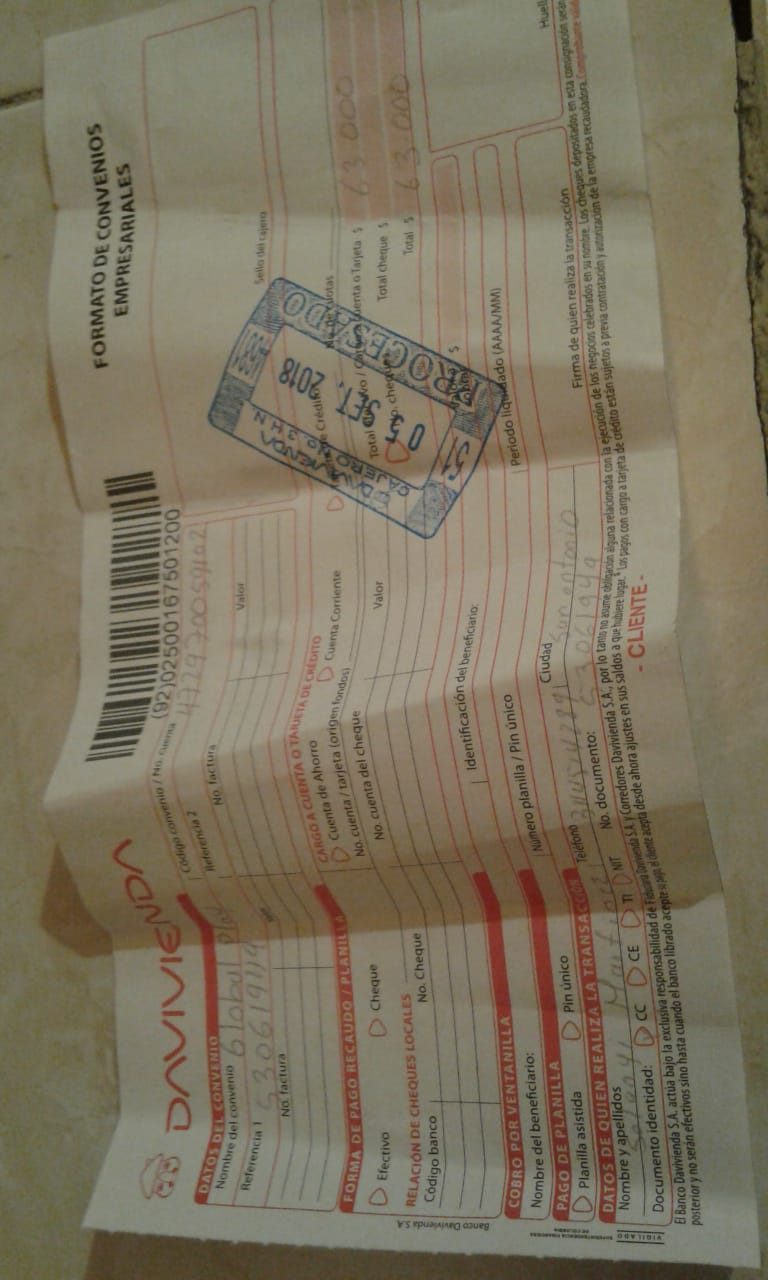 FORMATO DE CONVENIOS
EMPRESARIALES
DAVIVIENDA
(92)02500167501200
DATOS DEL CONVENIO
Nombre del convenio Global Play
Código convenio / No. cuenta
Referencia 1 53061949
Referencia 2
No. factura
Valor
No. factura
Valor
Sello del cajero
FORMA DE PAGO RECAUDO / PLANILLA
Efectivo
Cheque
CARGO A CUENTA O TARJETA DE CRÉDITO
Cuenta de Ahorro
Cuenta Corriente
No. cuenta / tarjeta (origen fondos)
RELACIÓN DE CHEQUES LOCALES
Código banco
No. Cheque
No. cuenta del cheque
Valor
63.000
Total cheque $
Total $ 63.000
DAVIVIENDA
CAJERO No. 3 H.N.
05 SET. 2018
PROCESADO
51
COBRO POR VENTANILLA
Nombre del beneficiario:
Identificación del beneficiario:
PAGO DE PLANILLA
Planilla asistida
Pin único
Número planilla / Pin único
Periodo liquidado (AAAA/MM)
DATOS DE QUIEN REALIZA LA TRANSACCIÓN
Nombre y apellidos
Teléfono
Ciudad San antonio
Firma de quien realiza la transacción
Documento identidad:
CC
CE
TI
NIT
No. documento: 53061949
El Banco Davivienda S.A. actúa bajo la exclusiva responsabilidad de Fiduciaria Davivienda S.A. y Corredores Davivienda S.A., por lo tanto no asume obligación alguna relacionada con la ejecución de los negocios celebrados en su nombre. Los cheques depositados en esta consignación serán
posterior y no serán efectivos sino hasta cuando el banco librado acepte su pago, el cliente acepta desde ahora ajustes en sus saldos a que hubiere lugar. Los pagos con cargo a tarjeta de crédito están sujetos a previa contratación y autorización de la empresa recaudadora.
- CLIENTE -
Banco Davivienda S.A.
VIGILADO SUPERINTENDENCIA FINANCIERA
DE COLOMBIA